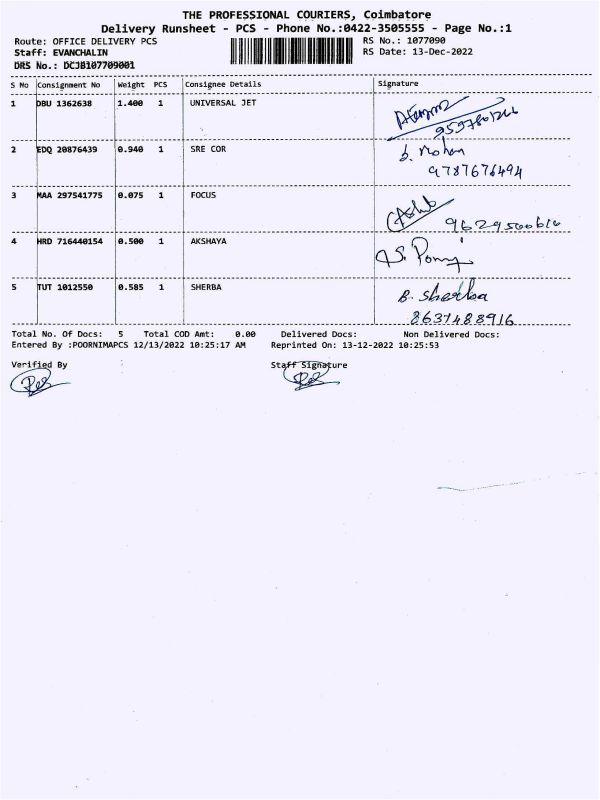 THE PROFESSIONAL COURIERS, Coimbatore
Delivery Runsheet - PCS - Phone No.:0422-3505555 - Page No.:1
Route: OFFICE DELIVERY PCS RS No.: 1077090
Staff: EVANCHALIN RS Date: 13-Dec-2022
DRS No.: DCJB107709001
S No Consignment No Weight PCS Consignee Details Signature
1 DBU 1362638 1.400 1 UNIVERSAL JET
2 EDQ 20876439 0.940 1 SRE COR
S. Mohan
9787676494
3 MAA 297541775 0.075 1 FOCUS
9629500616
4 HRD 716440154 0.500 1 AKSHAYA
5 TUT 1012550 0.585 1 SHERBA
B. Sherba
8637488916
Total No. Of Docs: 5 Total COD Amt: 0.00 Delivered Docs: Non Delivered Docs:
Entered By :POORNIMAPCS 12/13/2022 10:25:17 AM Reprinted On: 13-12-2022 10:25:53
Verified By Staff Signature